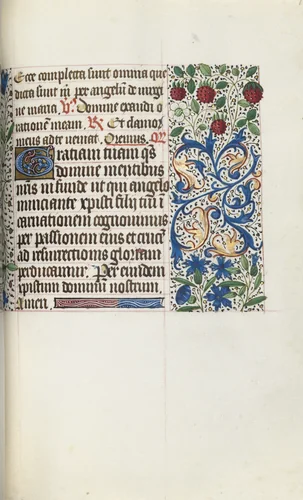 Ecce completa sunt omnia que
dicta sunt per angelū de virgi
ne maria. V. Domine exaudi o
rationem meam. R. Et clamor
meus ad te veniat. Oremus. Or
Gratiam tuam qs
domine mentibus
nr̄is infunde ut qui angelo
nunciante xpisti filij tui in
carnationem cognouimus
per passionem eius et crucē
ad resurrectionis gloriam
perducamur. Per eundem
xpistum dominū nostrum.
Amen.